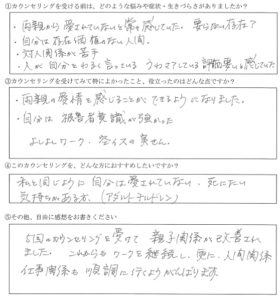 ①カウンセリングを受ける前は、どのような悩みや症状・生きづらさがありましたか？
・両親から愛されていないと常に感じていた。要らない存在？
・自分は存在価値のない人間。
・対人関係が苦手
・人が自分をわるく言っている うわさしている 感じていた
②カウンセリングを受けてみて特によかったこと、役立ったのはどんな点ですか？
・両親の愛情を感じることができるようになりました。
・自分は被害者意識が強かった
よしよしワーク、
④このカウンセリングを、どんな方におすすめしたいですか？
私と同じように自分は愛されていない、死にたい
気持ちがある方。（アダルトチルドレン）
⑤その他、自由に感想をお書きください
5回のカウンセリングを受けて 親子関係が改善され
ました。これからもワークを継続し、更に、人間関係
仕事関係も順調に行くようがんばります